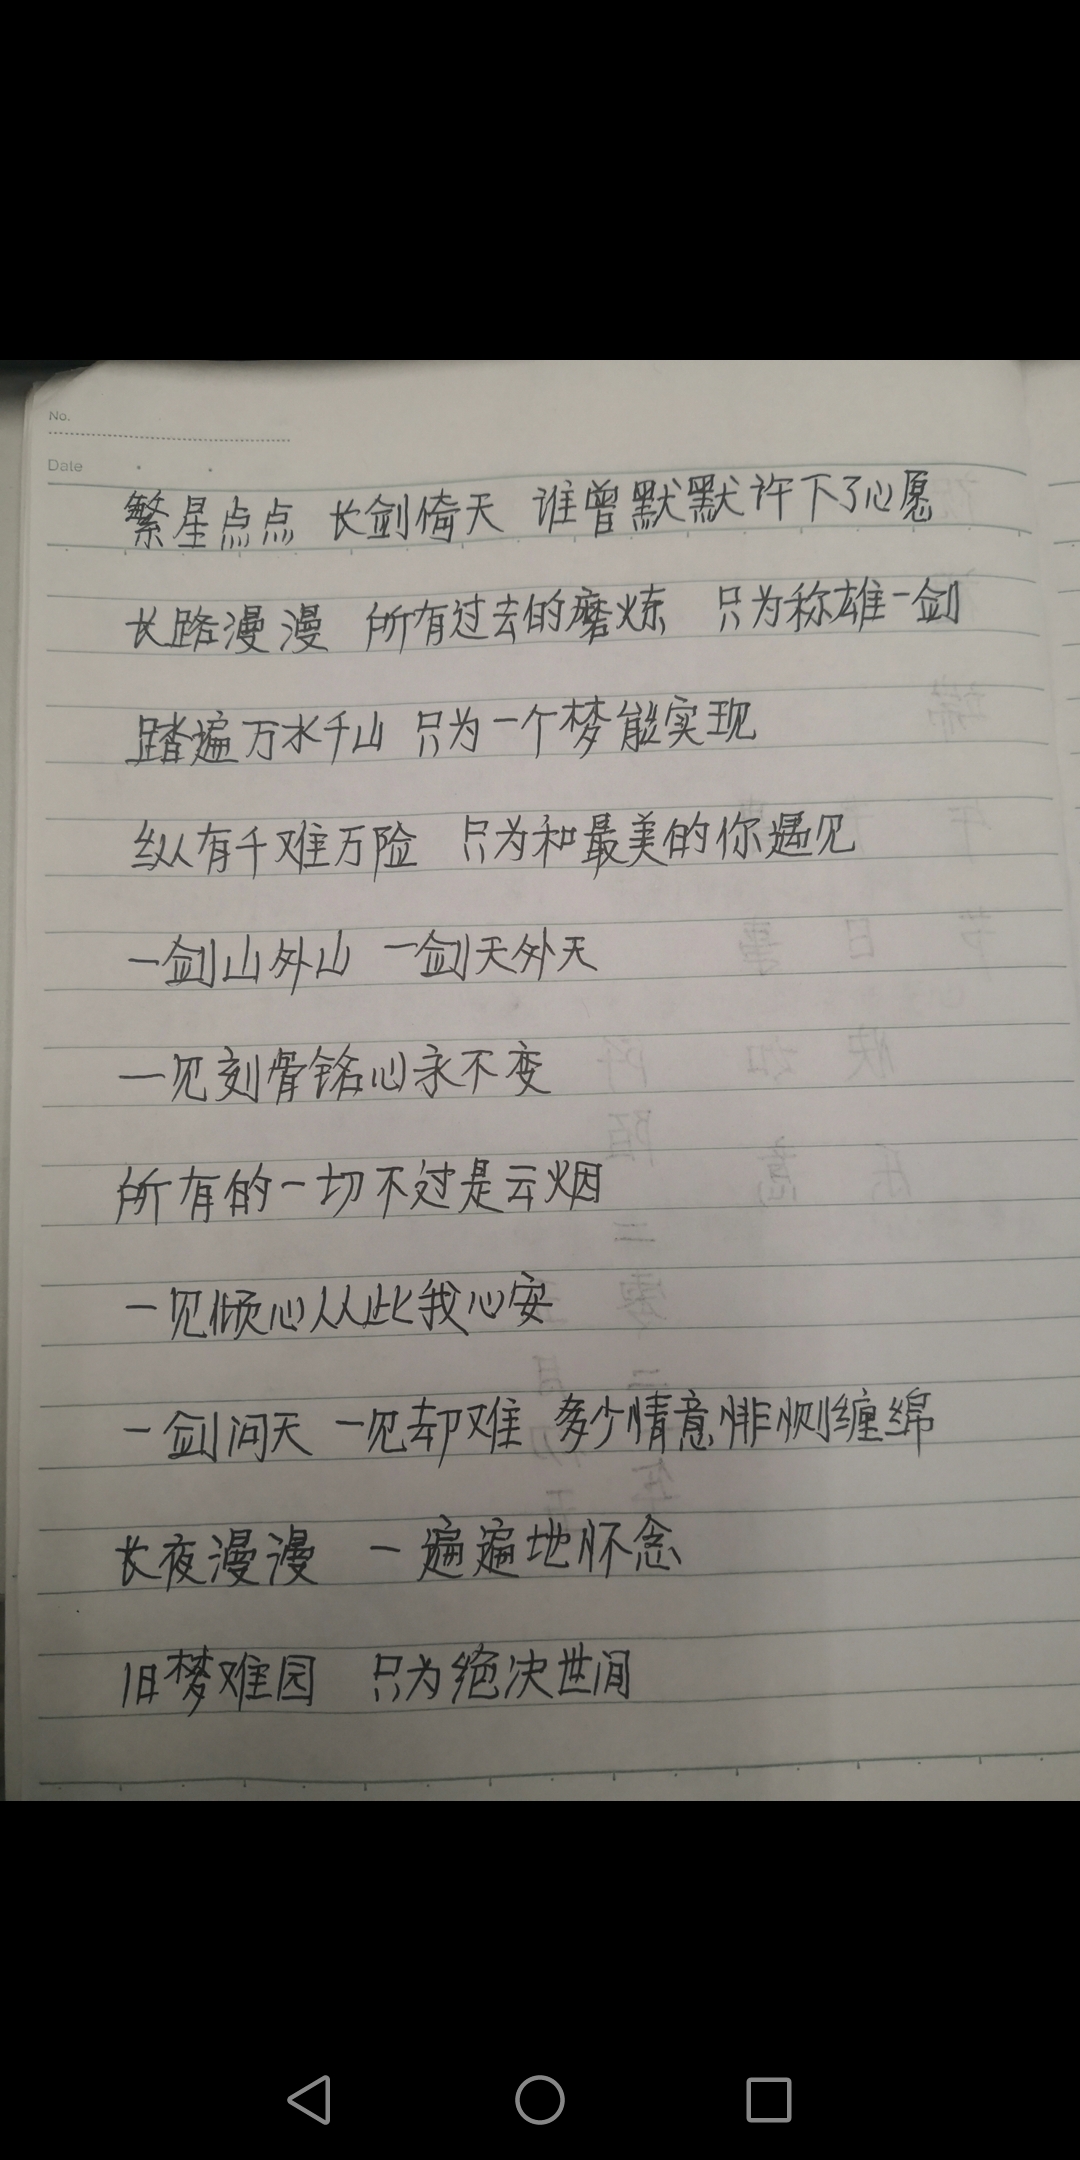 No.
Date
繁星点点 长剑倚天 谁曾默默许下了心愿
长路漫漫 所有过去的磨炼 只为称雄一剑
踏遍万水千山 只为一个梦能实现
纵有千难万险 只为和最美的你遇见
一剑山外山 一剑天外天
一见刻骨铭心永不变
所有的一切不过是云烟
一见倾心从此我心安
一剑问天 一见却难 多少情意悱恻缠绵
长夜漫漫 一遍遍地怀念
旧梦难园 只为绝决世间